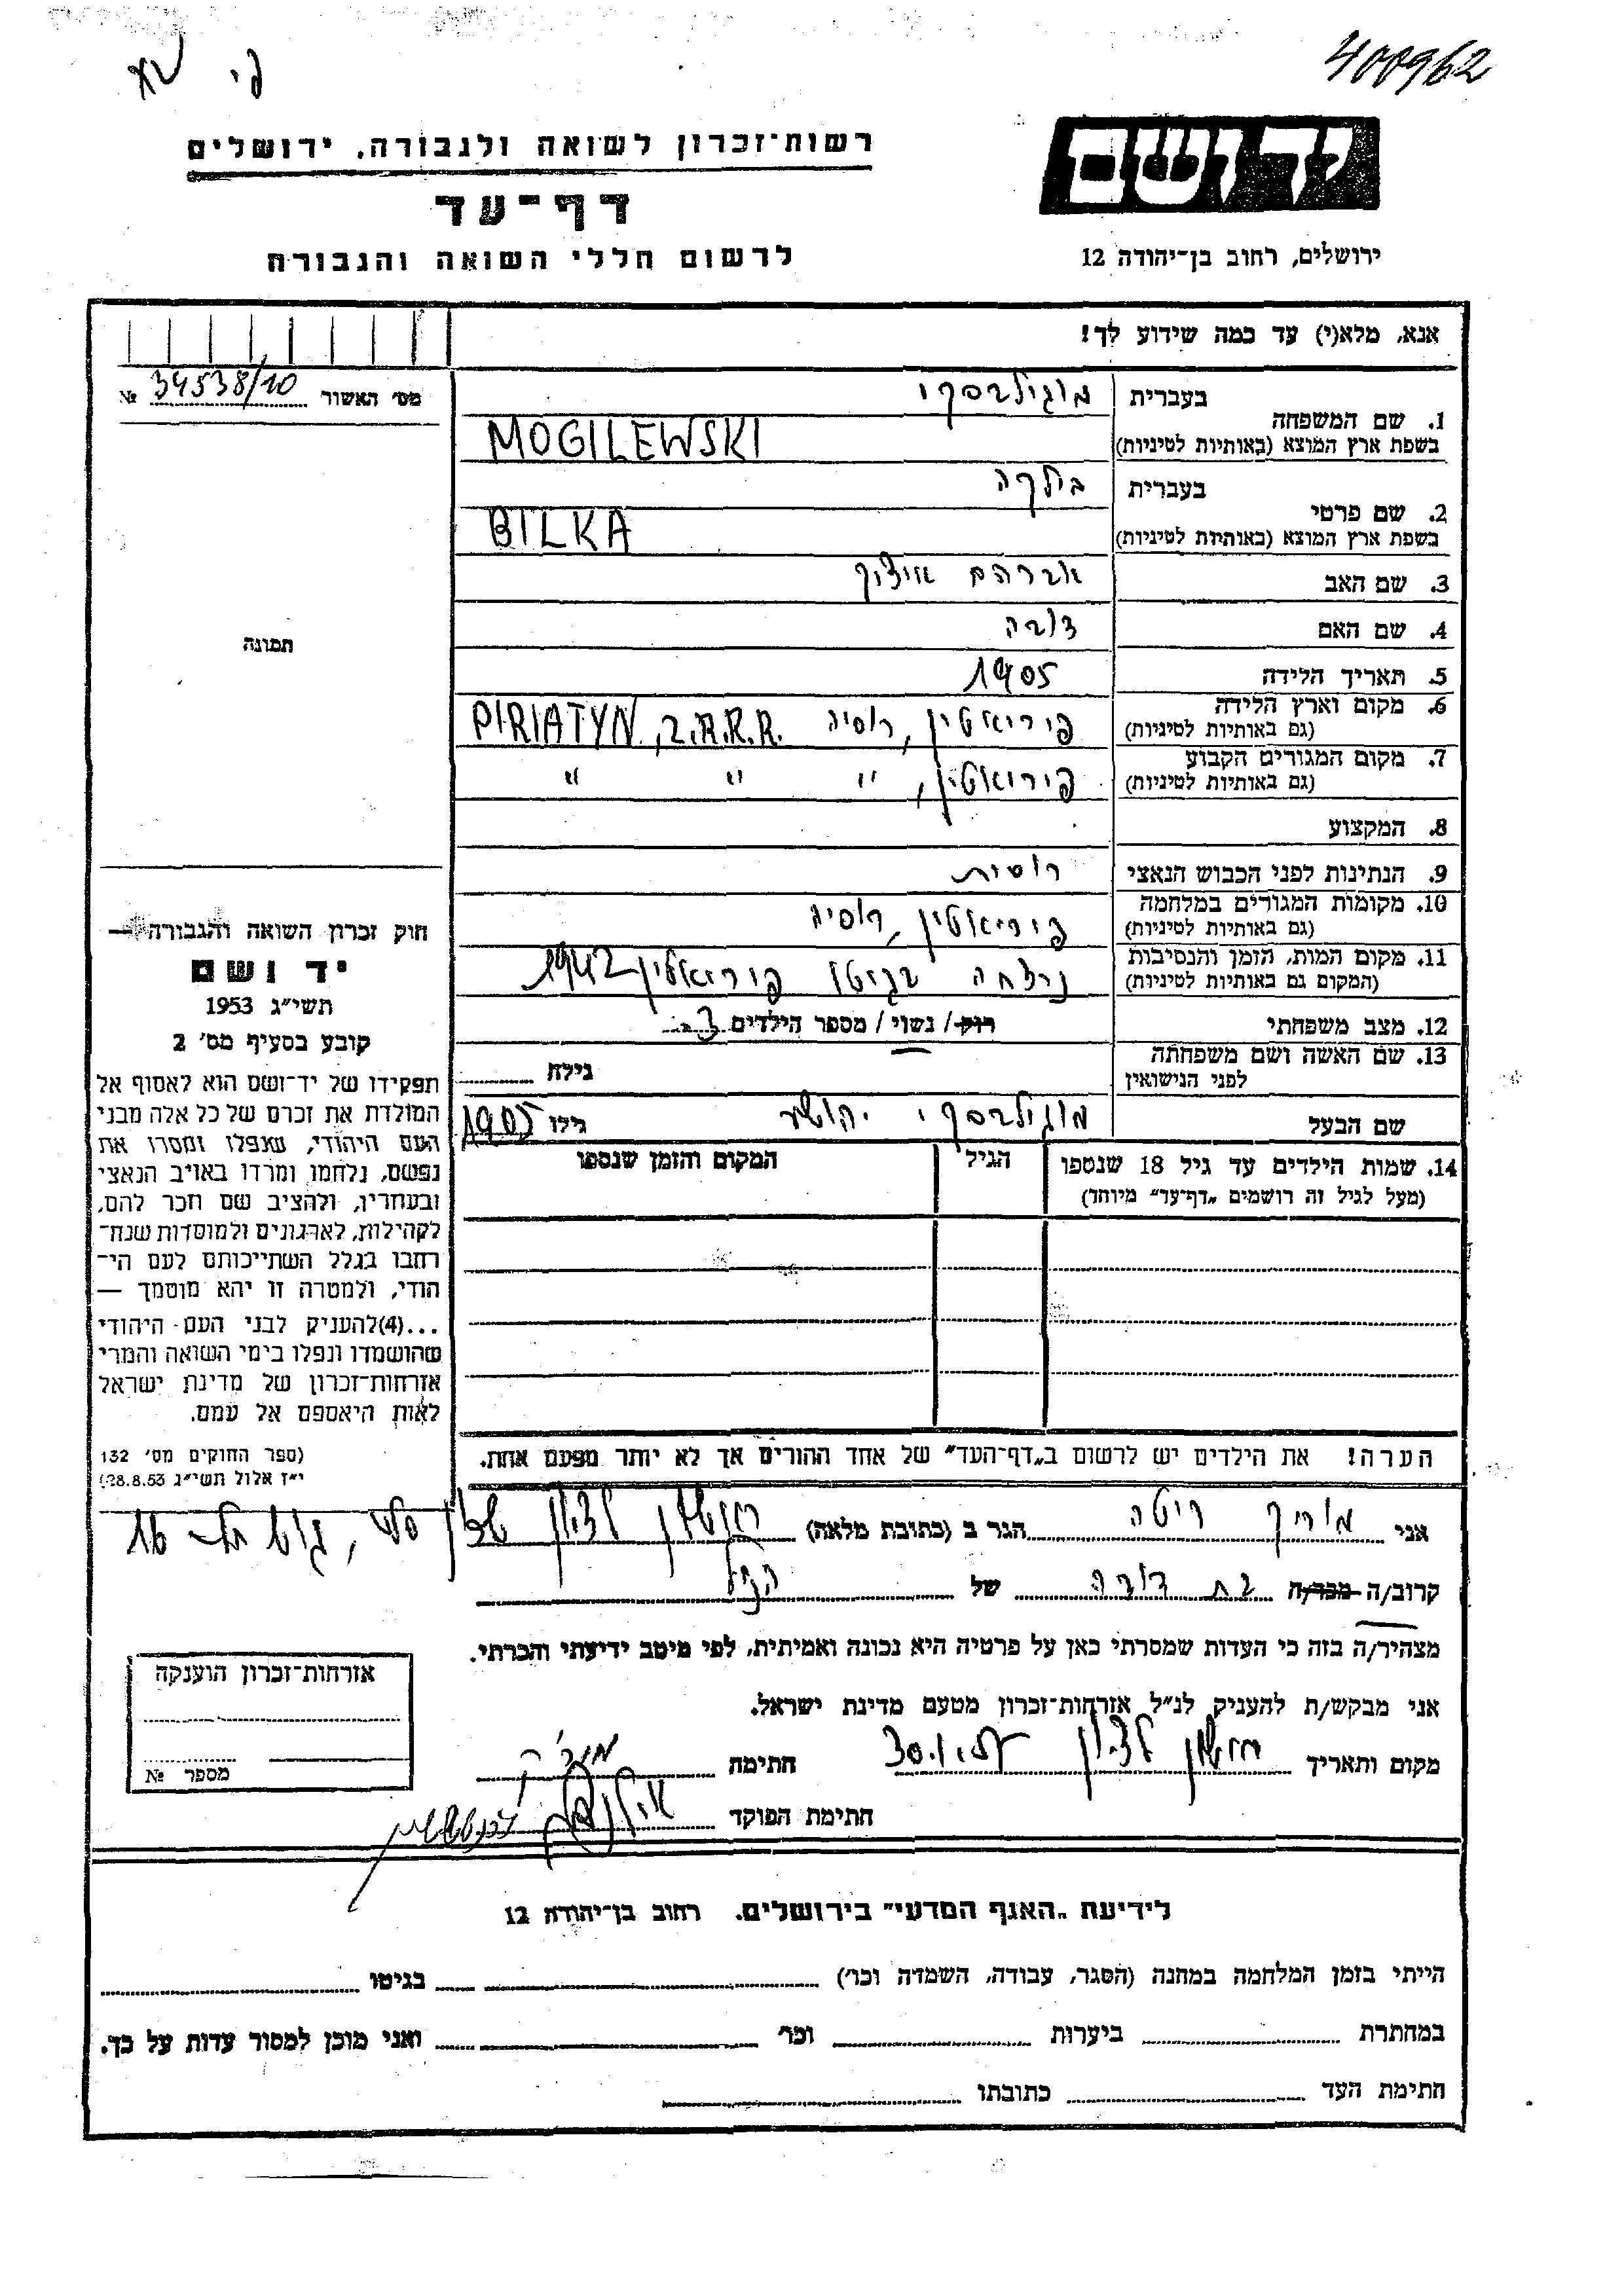 400962
רשות־זכרון לשואה ולגבורה, ירושלים
יד ושם
דף־עד
לרשום חללי השואה והגבורה
ירושלים, רחוב בן־יהודה 12
אנא, מלא(י) עד כמה שידוע לך!
מס׳ האשור 34538/10 №
1. שם המשפחה
בעברית מוגילבסקי
בשפת ארץ המוצא (באותיות לטיניות) MOGILEWSKI
2. שם פרטי
בעברית בילקה
בשפת ארץ המוצא (באותיות לטיניות) BILKA
3. שם האב אברהם איציק
4. שם האם
תמונה
5. תאריך הלידה 1905
6. מקום וארץ הלידה (גם באותיות לטיניות) פיריאטין, רוסיה PIRIATYN, Z.R.R.R.
7. מקום המגורים הקבוע (גם באותיות לטיניות) פיריאטין, " " "
8. המקצוע
9. הנתינות לפני הכבוש הנאצי רוסית
10. מקומות המגורים במלחמה (גם באותיות לטיניות) פיריאטין, רוסיה
11. מקום המות, הזמן והנסיבות (המקום גם באותיות לטיניות) נרצחה בגיטו פיריאטין 1942
12. מצב משפחתי רוק/ נשוי / מספר הילדים 3
13. שם האשה ושם משפחתה לפני הנישואין
גילה
שם הבעל מוגילבסקי יהושע גילו 1905
14. שמות הילדים עד גיל 18 שנספו
(מעל לגיל זה רושמים „דף־עד״ מיוחד)
הגיל
המקום והזמן שנספו
הערה! את הילדים יש לרשום ב„דף־העד״ של אחד ההורים אך לא יותר מפעם אחת.
חוק זכרון השואה והגבורה —
יד ושם
תשי״ג 1953
קובע בסעיף מס׳ 2
תפקידו של יד־ושם הוא לאסוף אל
המולדת את זכרם של כל אלה מבני
העם היהודי, שנפלו ומסרו את
נפשם, נלחמו ומרדו באויב הנאצי
ובעוזריו, ולהציב שם וזכר להם,
לקהילות, לארגונים ולמוסדות שנח־
רבו בגלל השתייכותם לעם הי־
הודי, ולמטרה זו יהא מוסמך —
...(4)להעניק לבני העם היהודי
שהושמדו ונפלו בימי השואה והמרי
אזרחות־זכרון של מדינת ישראל
לאות היאספם אל עמם.
(ספר החוקים מס׳ 132
י״ז אלול תשי״ג 28.8.53)
אני מוריק ריטה הגר ב (כתובת מלאה) ראשון לציון 16
קרוב/ה מכר/ה בת דודה של הנ״ל
מצהיר/ה בזה כי העדות שמסרתי כאן על פרטיה היא נכונה ואמיתית, לפי מיטב ידיעתי והכרתי.
אני מבקש/ת להעניק לנ״ל אזרחות־זכרון מטעם מדינת ישראל.
מקום ותאריך ראשון לציון 30.1. חתימה
חתימת הפוקד
אזרחות־זכרון הוענקה
מספר №
לידיעת „האגף המדעי״ בירושלים. רחוב בן־יהודה 12
הייתי בזמן המלחמה במחנה (הסגר, עבודה, השמדה וכו׳) בגיטו
במחתרת ביערות וכו׳ ואני מוכן למסור עדות על כך.
חתימת העד כתובתו